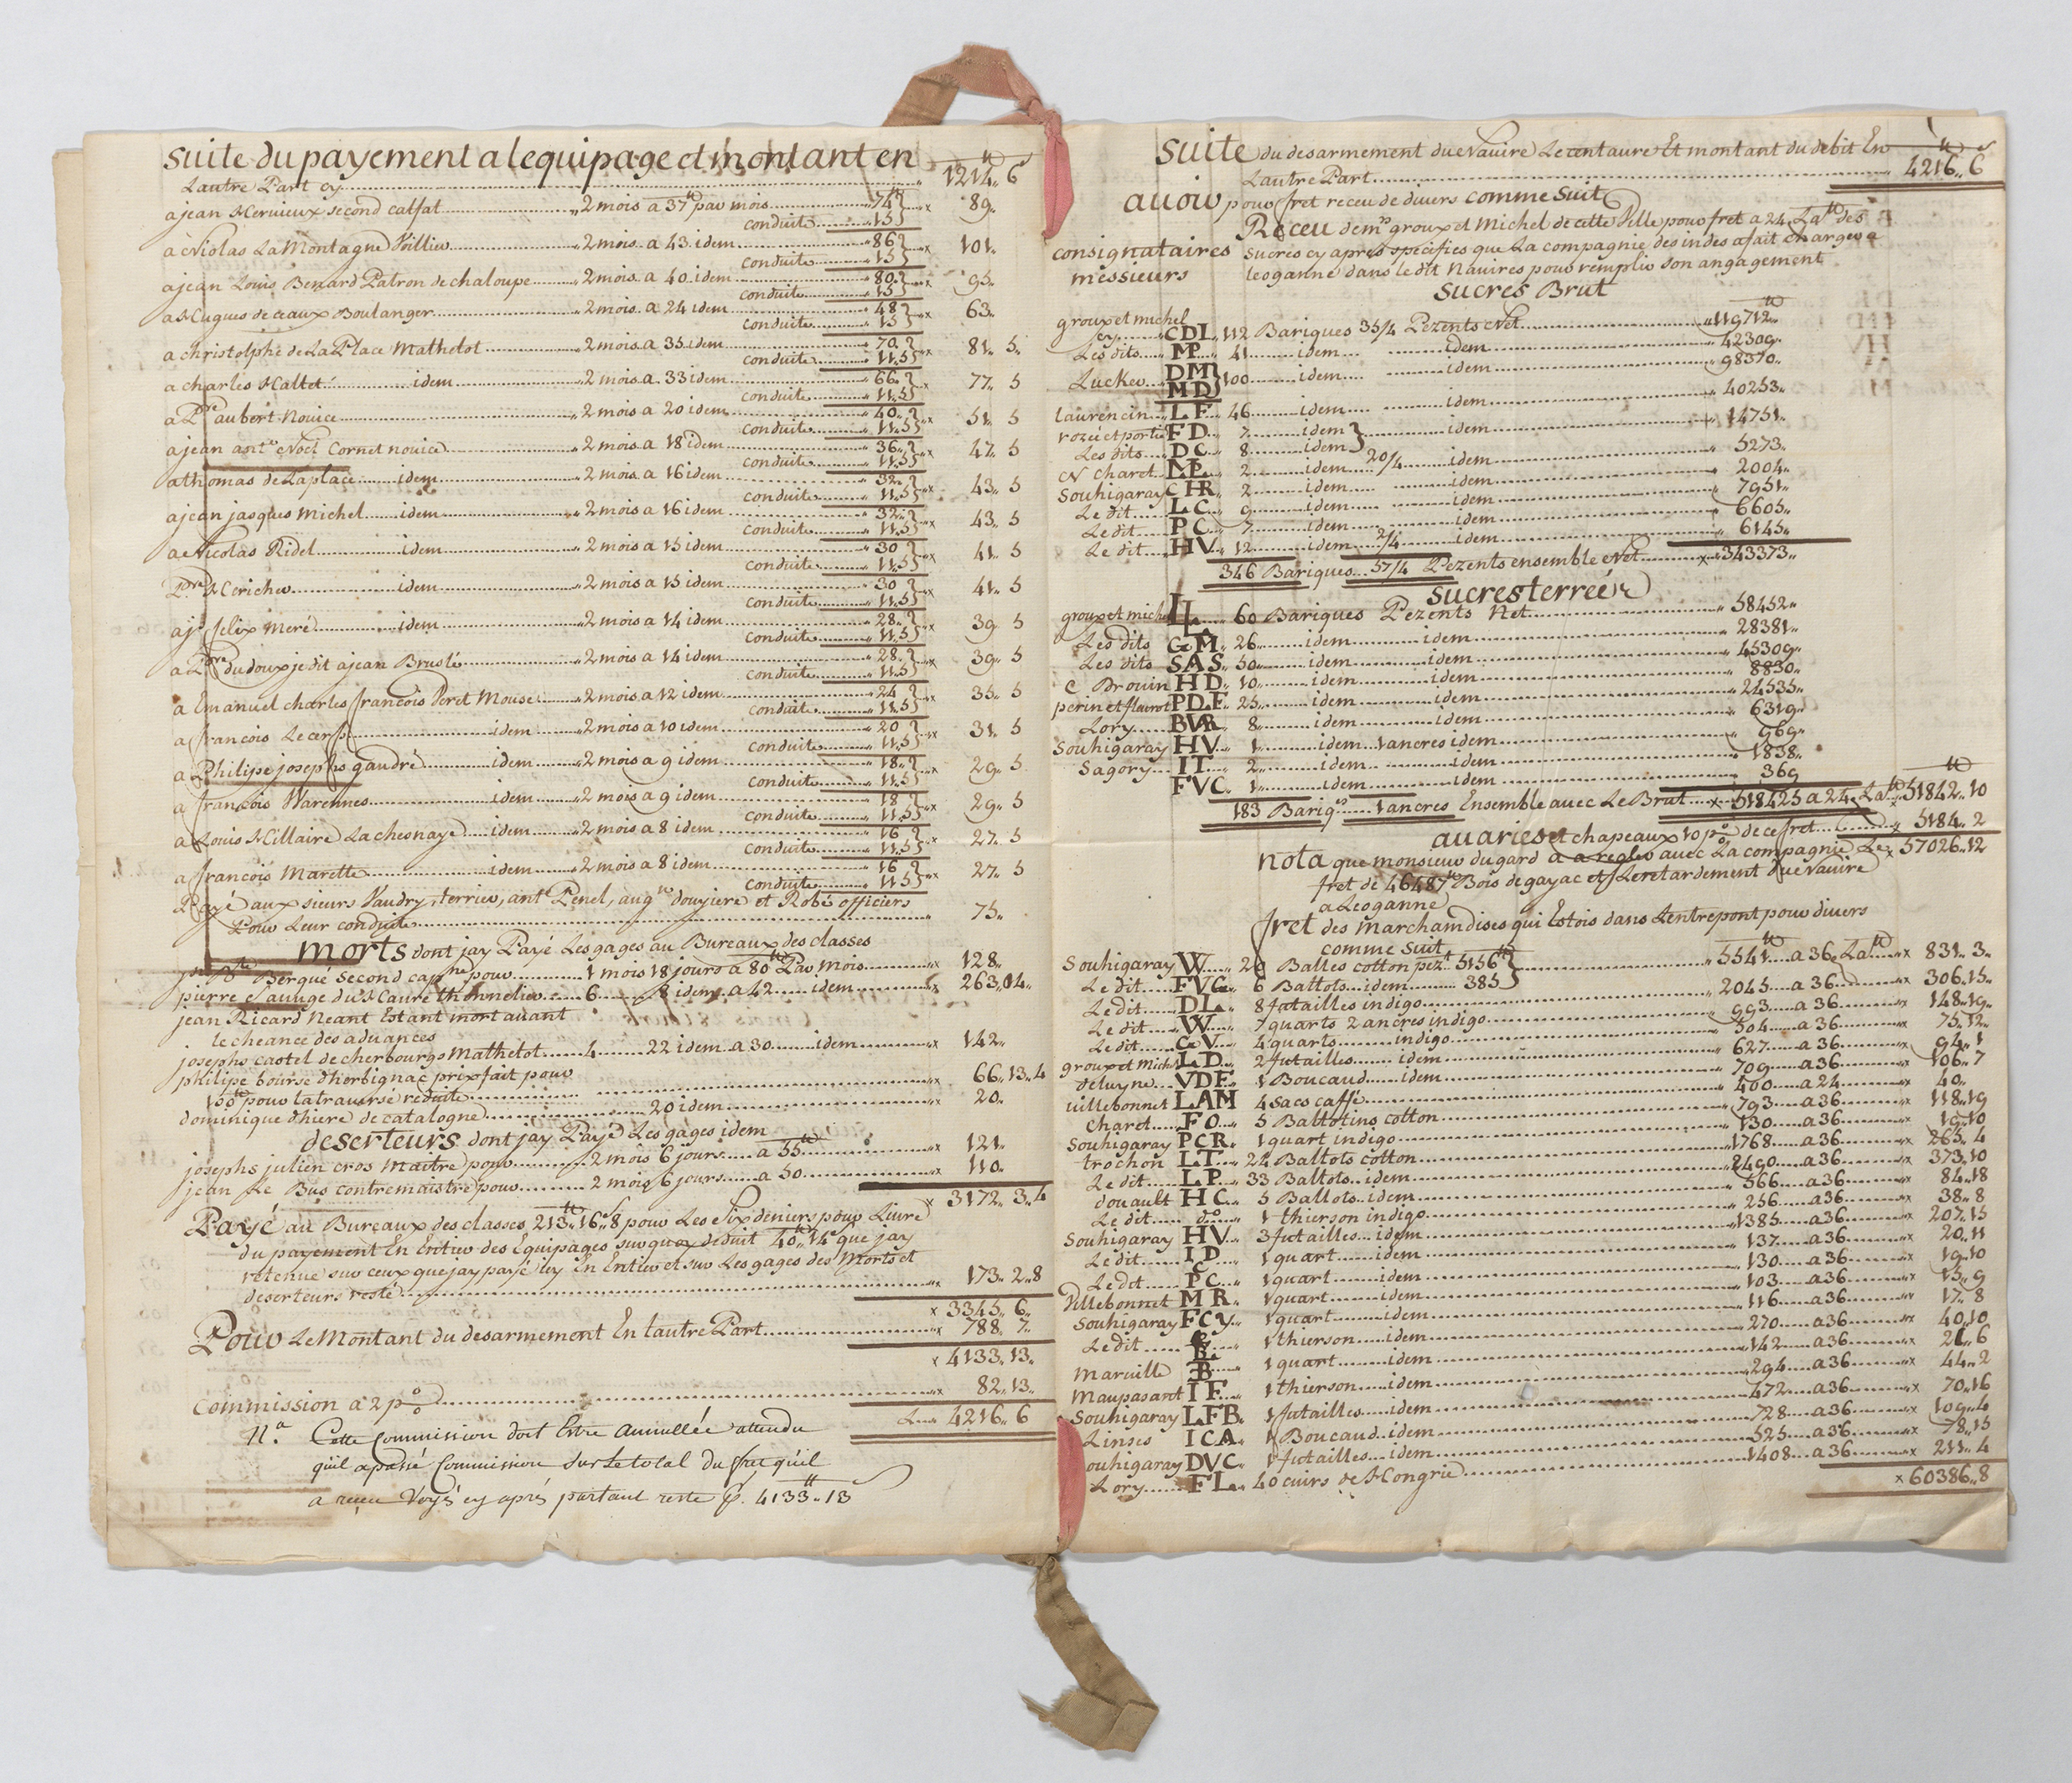 suite du payement a lequipage et montant en
Lautre Part cy 1214.. 6
a jean Hervieux second calfat 2 mois a 37tt par mois 74 } 89..
conduite 15
a Nicolas La Montagne Voillier 2 mois a 43 idem 86 } 101..
conduite 15
a jean Louis Benard Patron de chaloupe 2 mois a 40 idem 80 } 95..
conduite 15
a Hugues de ceaux Boulanger 2 mois a 24 idem 48 } 63..
conduite 15
a christolphe de La Place Mathelot 2 mois a 35 idem 70 } 81.. 5
conduite 11..5
a charles Hallet idem 2 mois a 33 idem 66 } 77.. 5
conduite 11..5
a Pre aubert Novice 2 mois a 20 idem 40 } 51.. 5
conduite 11..5
a jean ante Noel Cornet novice 2 mois a 18 idem 36 } 47.. 5
conduite 11..5
a thomas de Laplace idem 2 mois a 16 idem 32 } 43.. 5
conduite 11..5
a jean jasques Michel idem 2 mois a 16 idem 32 } 43.. 5
conduite 11..5
a Nicolas Ridel idem 2 mois a 15 idem 30 } 41.. 5
conduite 11..5
Pre Hericher idem 2 mois a 15 idem 30 } 41.. 5
conduite 11..5
a jn felix Meré idem 2 mois a 14 idem 28 } 39 5
conduite 11..5
a Pre du doux je dit a jean Bruslé 2 mois a 14 idem 28 } 39.. 5
conduite 11..5
a Emanuel charles françois Peret Mousse 2 mois a 12 idem 24 } 35.. 5
conduite 11..5
a françois Le cerf idem 2 mois a 10 idem 20 } 31.. 5
conduite 11..5
a Philipe josephs gaudré idem 2 mois a 9 idem 18 } 29.. 5
conduite 11..5
a françois Warennes idem 2 mois a 9 idem 18 } 29.. 5
conduite 11..5
a Louis Hillaire Lachesnaye idem 2 mois a 8 idem 16 } 27.. 5
conduite 11..5
a françois Marette idem 2 mois a 8 idem 16 } 27.. 5
conduite 11..5
Payé aux sieurs Vaudry, terrier, ant Penel, augtn douyiere et Robé officiers
Pour Leur conduite 75..
morts dont jay Payé Les gages au Bureaux des classes
Berqué Second capne pour 1 mois 18 jours a 80tt Par mois 128..
pierre Sauuge du Havre thonnelier 6 8 idem a 42 idem 263..04..
jean Ricard Neant Estant mort avant
le cheance des advances
josephs castel de cherbourgs Mathelot 4 22 idem a 30 idem 142..
philipe bourse dherbignac prix fait pour
100tt pour la traverse reduite 66..13..4
dominique dhiere de catalogne 20 idem 20..
deserteurs dont jay Payé Les gages idem
josephs julien cros Maitre pour 2 mois 6 jours a 55tt 121..
jean Le Bus contremaistre pour 2 mois 6 jours a 50 110..
3172..3..4
Payé au Bureaux des classes 213tt..16s..8 pour Les six deniers pour Livre
du payement En Entier des Equipages surquoy deduit 40tt..14s que jay
retenue sur ceux que jay payé icy En Entier et sur Les gages des Morts et
deserteurs reste 173..2..8
3345..6..
Pour Le Montant du desarmement En Lautre Part 788..7..
4133..13..
Commission a 2 p% 82..13..
4216..6
Na. Cette Commission doit Estre annullée attendu
qu'il a passé Commission sur Le total du fret qu'il
a receu Voyés cy après partant reste p. 4133tt..13
suite du desarmement du Navire Le centaure Et montant du debit En
Lautre Part 4216.. 6
avoir pour fret receu de divers comme suit
Receu de mrs groux et Michel de cette Ville pour fret a 24 Latt des
consignataires sucres cy apres spécifies que La compagnie des indes a fait charger a
messieurs leoganne dans le dit Navires pour remplir son angagement
sucres Brut
groux et michel
cy CDL 112 Bariques 35/4 Pezents Net 119712..
Les dits MP 41 idem idem 42309..
Lucker DM MD } 100 idem idem 98370..
laurencin LF 46 idem idem 40253..
rozée et portier FD 7 idem } idem 14751..
Les dits DC 8 idem
N Charet MP 2 idem 20/4 idem 5273..
Souhigaray CHR 2 idem idem 2004..
Le dit LC 9 idem idem 7951..
Le dit PC 7 idem idem 6605..
Le dit HV 12 idem 2/4 idem 6145..
346 Bariques 57/4 Pezents ensemble Net 343373..
sucres terreés
groux et michel LL 60 Bariques Pezents Net 58452..
Les dits GM 26 idem idem 28381..
Les dits SAS 50 idem idem 45309..
C Brouin HD 10 idem idem 8830..
perin et flaurot PDF 25 idem idem 24535..
Lory BVR 8 idem idem 6319..
Souhigaray HV 1 idem 1 ancres idem 969..
Sagory IT 2 idem idem 1838..
FVC 1 idem idem 369
183 Bariqs 1 ancres Ensemble avec Le Brut 518425 a 24 Latt 51842..10
avaries et chapeaux 10 p% de ce fret 5184..2
nota que monsieur dugard a a regler avec La compagnie Le 57026..12
fret de 46487tt Bois de gayac et Le retardement du Navire
a Leoganne
fret des marchandises qui Estois dans Lentrepont pour divers
comme suit
Souhigaray W 29 Balles cotton pezt 5156tt } 5541tt a 36 Latt 831..3..
Le dit FVG 6 Ballots idem 385
Le dit DL 8 futailles indigo 2045 a 36 306..15..
Le dit W 7 quarts 2 ancres indigo 993 a 36 148..19..
Le dit GV 4 quarts indigo 504 a 36 75..12..
groux et Michl LD 2 futailles idem 627 a 36 94..1
deluyne VDF 1 Boucaud idem 709 a 36 106..7
villebonnet LAM 4 sacs caffé 400 a 24 40..
Charet FO 5 Ballotins cotton 793 a 36 118..19
Souhigaray PCR 1 quart indigo 130 a 36 19..10
trochon LT 22 Ballots cotton 1768 a 36 265..4
Le dit LP 33 Ballots idem 2490 a 36 373..10
douault HC 5 Ballots idem 566 a 36 84..18
Le dit do 1 thierson indigo 256 a 36 38..8
Souhigaray HV 3 futailles idem 1385 a 36 207..15
Le dit ID 1 quart idem 137 a 36 20..11
Le dit PC 1 quart idem 130 a 36 19..10
Villebonnet MR 1 quart idem 103 a 36 15..9
Souhigaray FCy 1 quart idem 116 a 36 17..8
Le dit 1 thierson idem 270 a 36 40..10
Marville B 1 quart idem 142 a 36 21..6
Maupasant IF 1 thierson idem 294 a 36 44..2
Souhigaray LFB 1 futailles idem 472 a 36 70..16
Linses ICA 1 Boucaud idem 728 a 36 109..4
ouhigaray DVC 1 futailles idem 525 a 36 78..15
Lory FL 40 cuirs de Hongrie 1408 a 36 211..4
60386..8